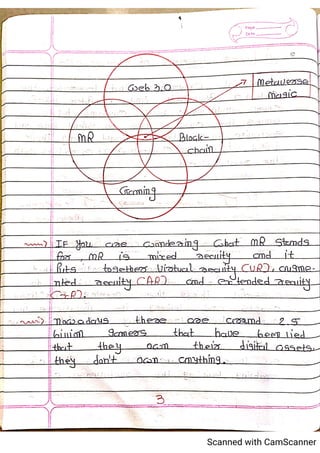 Page
Date
Web 3.0
Metaverse
Magic
MR
Block-
chain
Gaming
IF You are wondering what MR stands
for, MR is mixed reality and it
puts together Virtual reality (VR), augme-
nted reality (AR) and extended reality
(XR).
Nowadays there are around 2.5
billion gamers that have been lied
that they own their digital assets.
they don't own anything.
3
Scanned with CamScanner